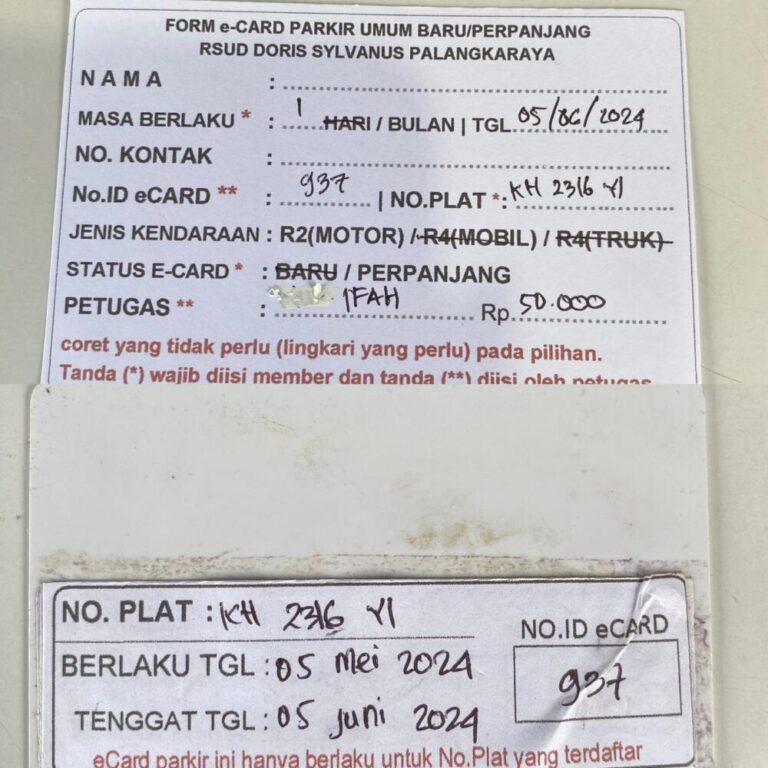 FORM e-CARD PARKIR UMUM BARU/PERPANJANG
RSUD DORIS SYLVANUS PALANGKARAYA
NAMA :
MASA BERLAKU * : 1 HARI / BULAN | TGL. 05/06/2024
NO. KONTAK :
No.ID eCARD ** : 937 | NO.PLAT *: KH 2316 YI
JENIS KENDARAAN : R2(MOTOR) / R4(MOBIL) / R4(TRUK)
STATUS E-CARD * : BARU / PERPANJANG
PETUGAS ** : IFAH Rp. 50.000
coret yang tidak perlu (lingkari yang perlu) pada pilihan.
Tanda (*) wajib diisi member dan tanda (**) diisi oleh petugas
NO. PLAT : KH 2316 YI
NO.ID eCARD
BERLAKU TGL : 05 Mei 2024
937
TENGGAT TGL : 05 juni 2024
eCard parkir ini hanya berlaku untuk No.Plat yang terdaftar